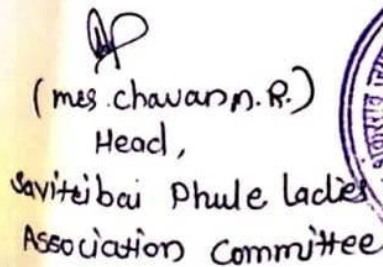 (mrs. chavan n. R.)
Head,
Savitribai Phule ladies
Association Committee